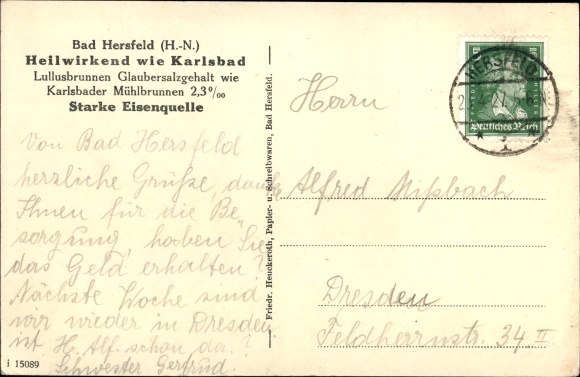 Bad Hersfeld (H.-N.)
Heilwirkend wie Karlsbad
Lullusbrunnen Glaubersalzgehalt wie
Karlsbader Mühlbrunnen 2,3‰
Starke Eisenquelle
Von Bad Hersfeld
herzliche Grüße, dank
Ihnen für die Be-
sorgung, haben Sie
das Geld erhalten?
Nächste Woche sind
wir wieder in Dresden
ist H. Alf. schon da?
Schwester Gertrud.
Friedr. Heuckeroth, Papier- u. Schreibwaren, Bad Hersfeld.
HERSFELD
Deutsches Reich
Herrn
Alfred Mißbach
Dresden
Feldherrnstr. 34 II
i 15089